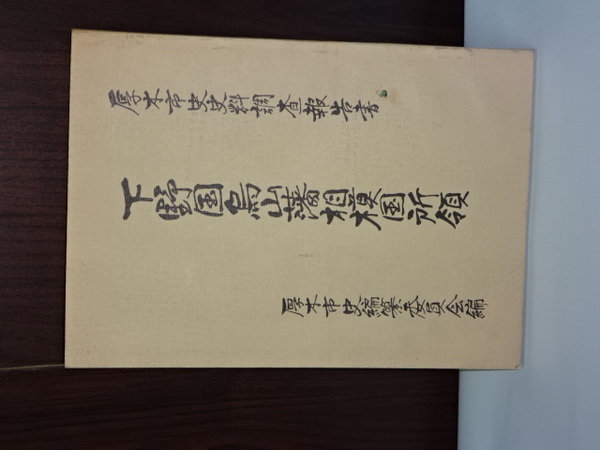 厚木市史史料調査報告書
下野国烏山藩相模国所領
厚木市史編纂委員会編